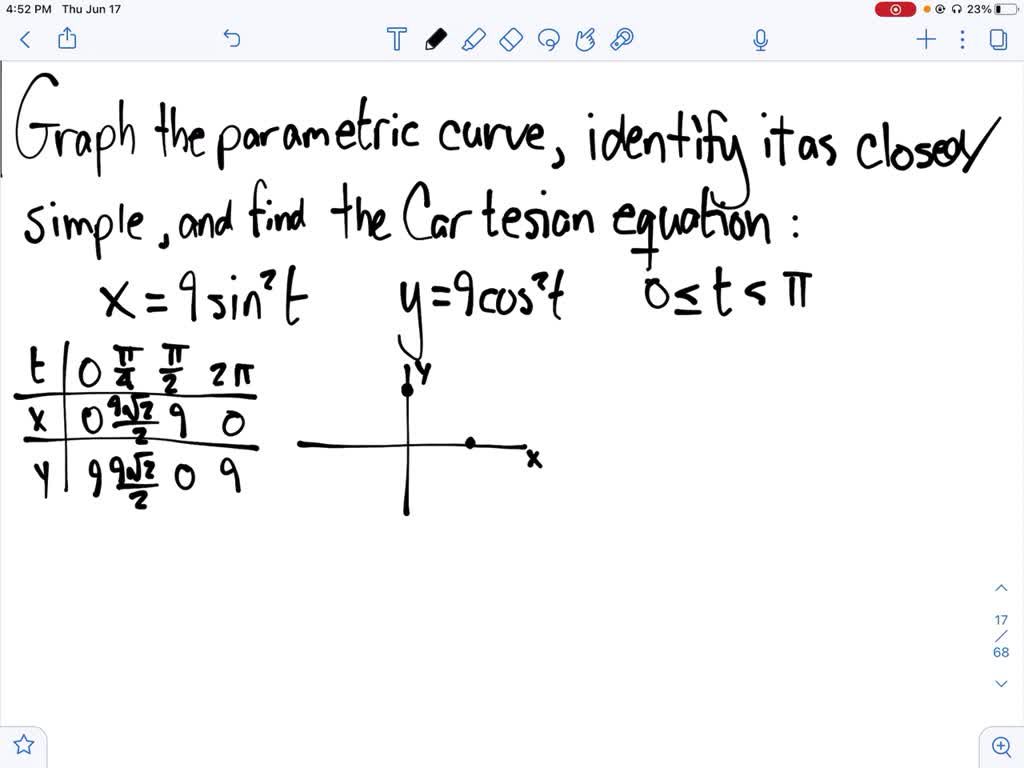 4:52 PM Thu Jun 17
23%
Graph the parametric curve, identify it as closed/
simple, and find the Cartesian equation:
x = 9 sin² t y = 9 cos² t 0 ≤ t < π
t 0 π/4 π/2 2π
x 0 9√2/2 9 0
y 9 9√2/2 0 9
y
x
17
/
68